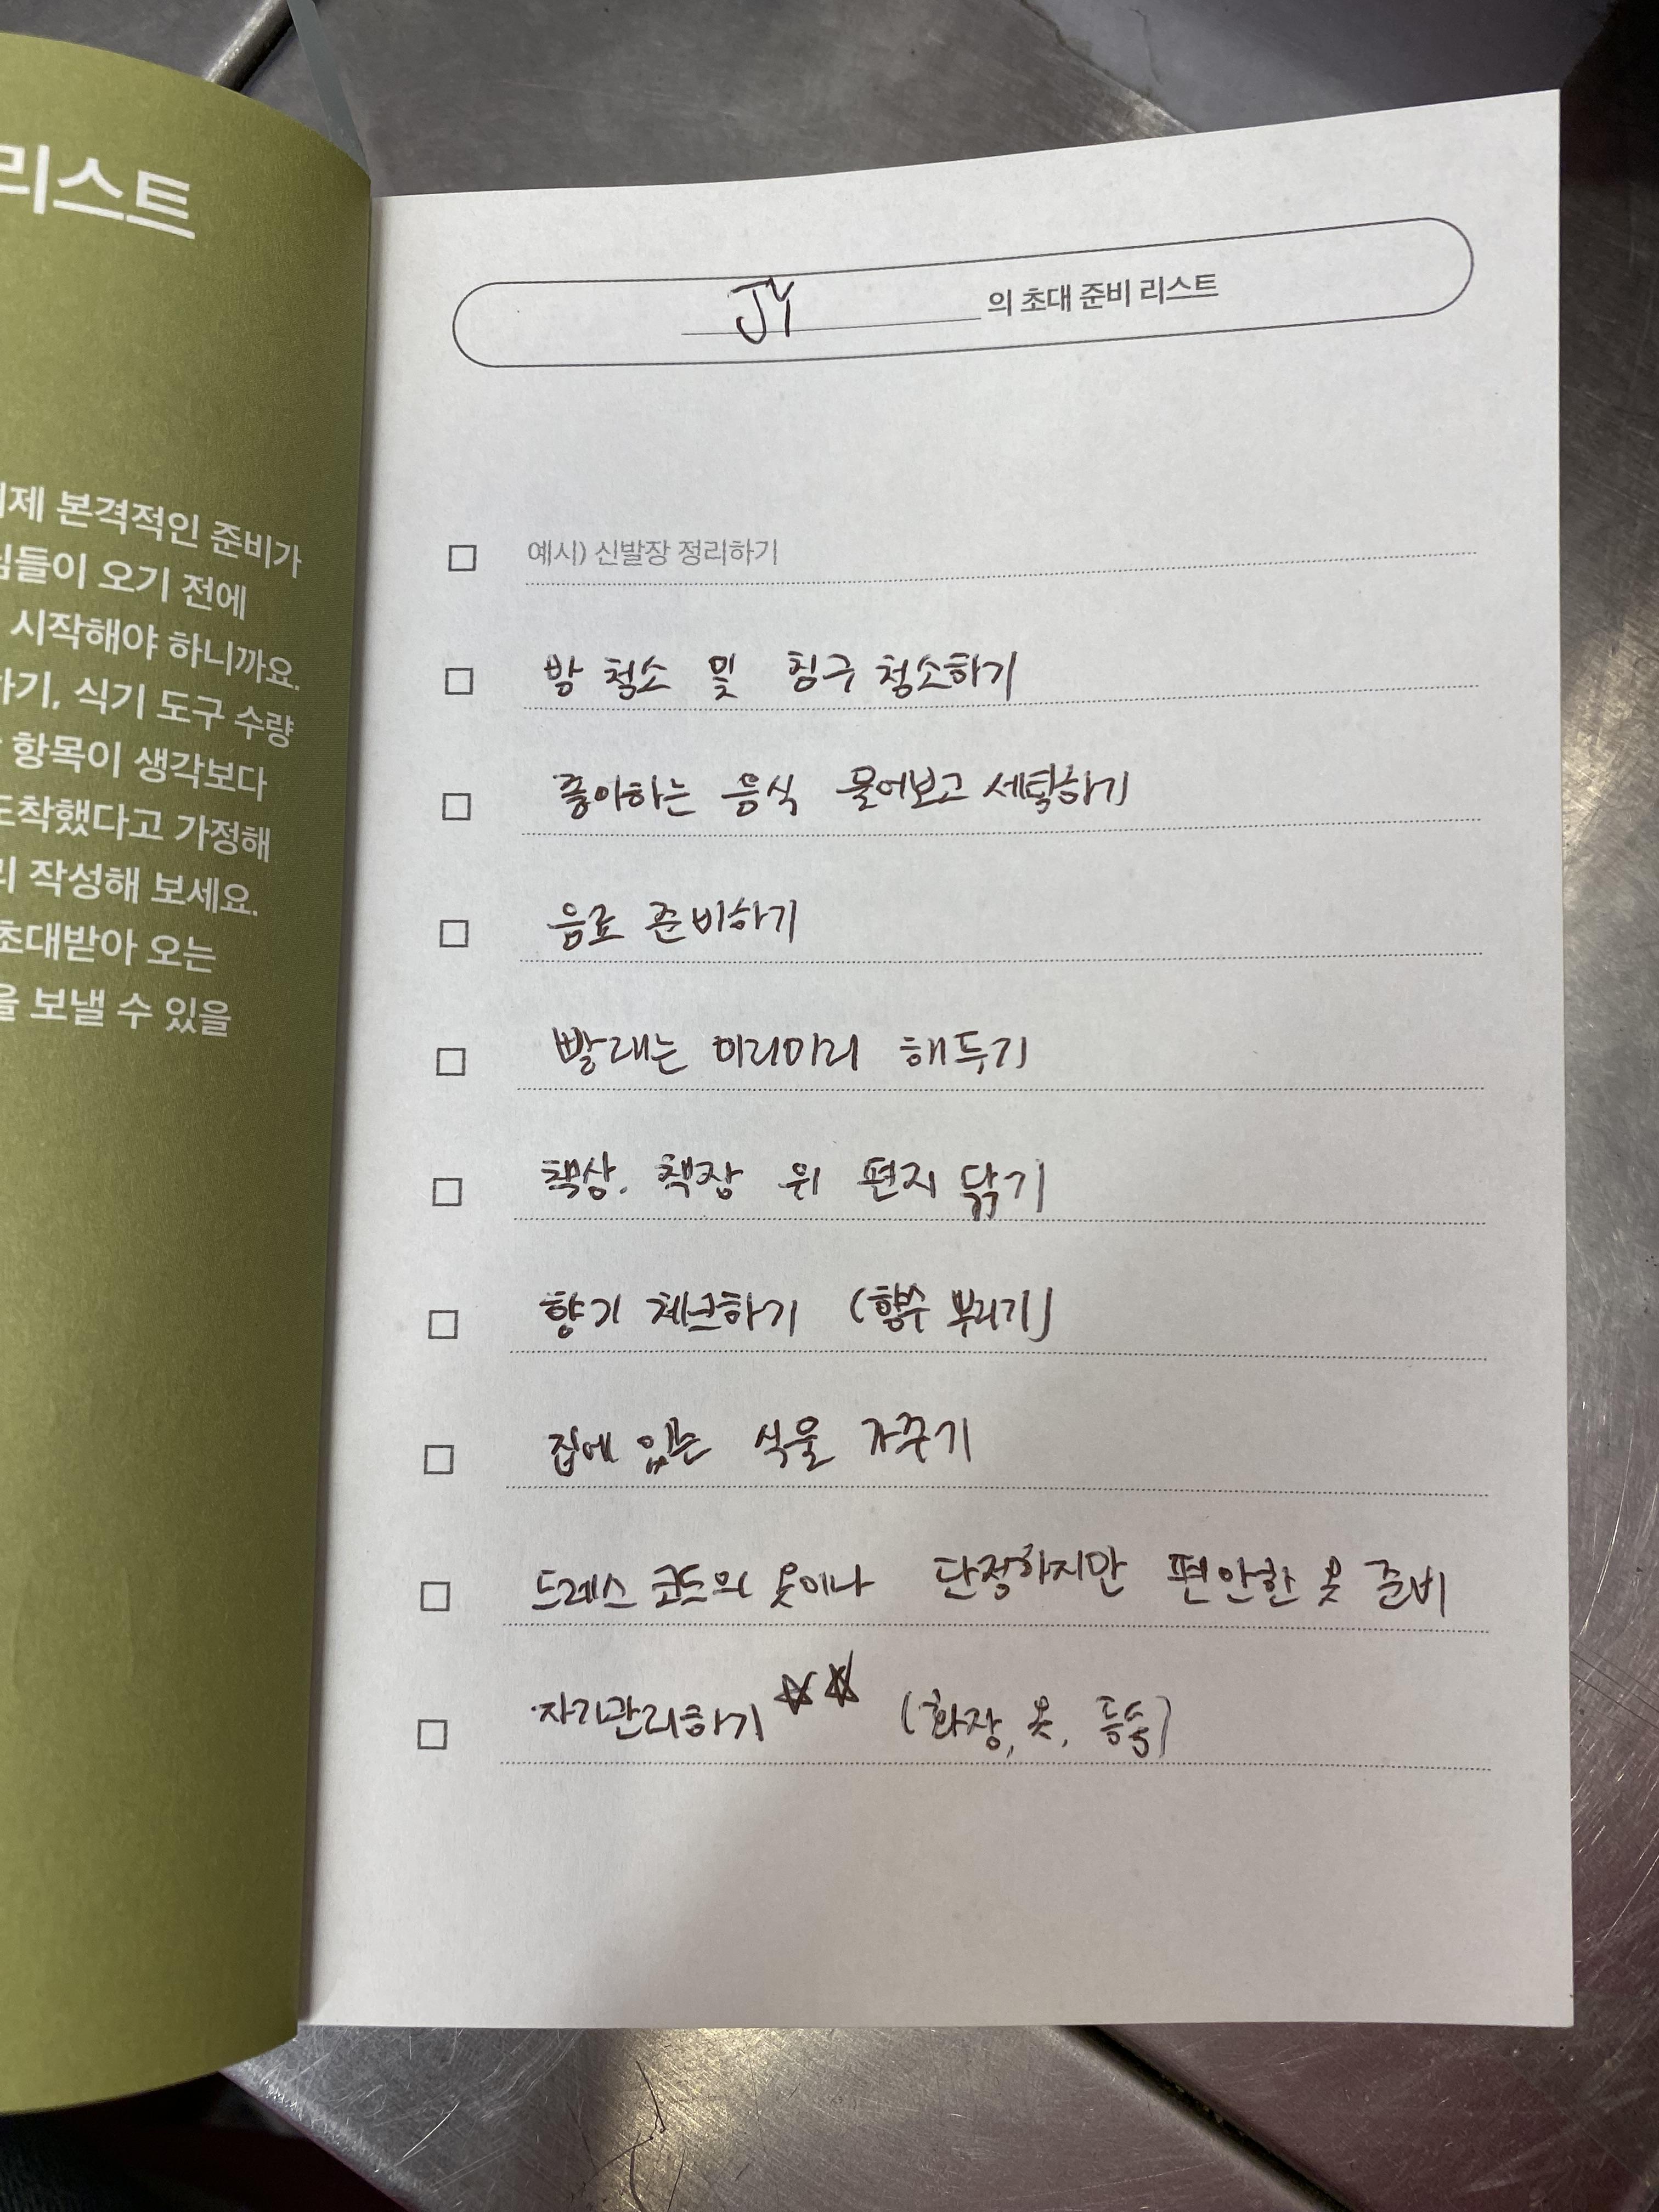 리스트
제 본격적인 준비가
들이 오기 전에
시작해야 하니까요.
하기, 식기 도구 수량
항목이 생각보다
도착했다고 가정해
리 작성해 보세요.
초대받아 오는
을 보낼 수 있을
JY 의 초대 준비 리스트
예시) 신발장 정리하기
방 청소 및 침구 청소하기
좋아하는 음식 물어보고 세팅하기
음료 준비하기
빨래는 미리미리 해두기
책상, 책장 위 먼지 닦기
향기 체크하기 (향수 뿌리기)
집에 있는 식물 가꾸기
드레스 코드의 옷이나 단정하지만 편안한 옷 준비
자기관리하기 ☆☆ (화장, 옷, 등등)